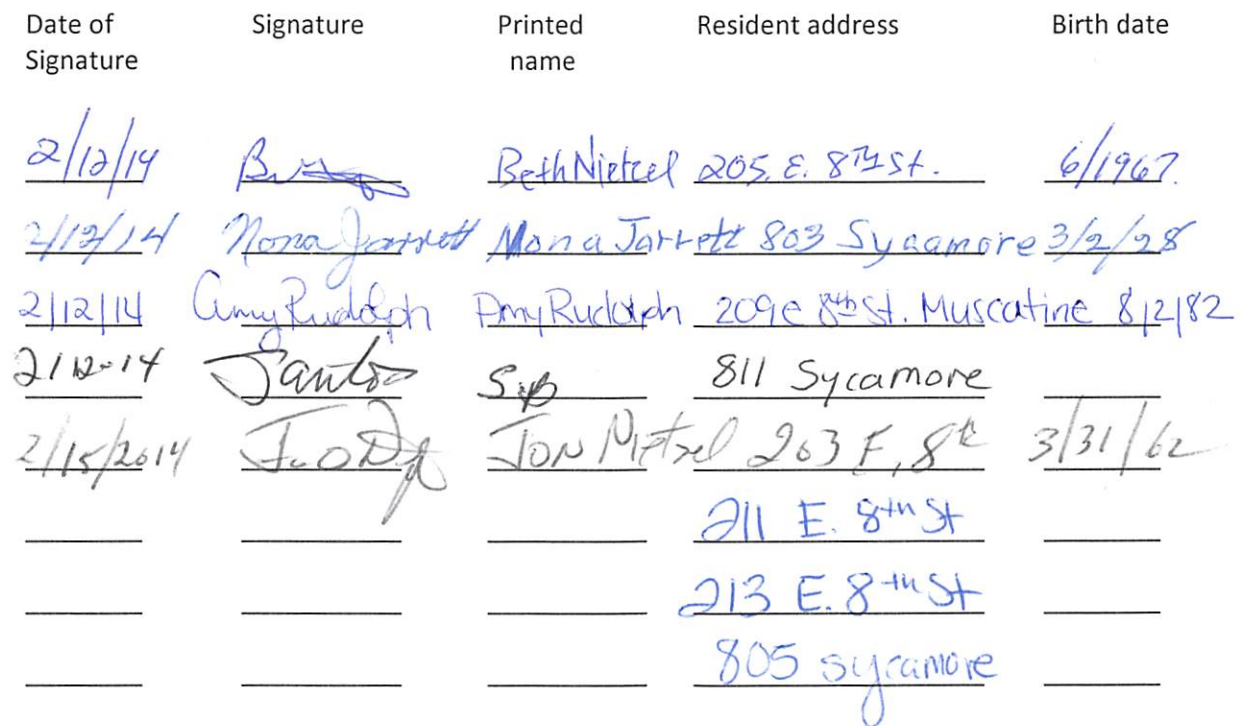 Date of Signature Signature Printed name Resident address Birth date
2/12/14 Beth Nietzel 205 E. 8TH St. 6/1967.
2/12/14 Nona Jarrett Mona Jarrett 803 Sycamore 3/2/28
2/12/14 Amy Rudolph Amy Rudolph 209 e 8th St. Muscatine 8/2/82
2/12-14 Santos 811 Sycamore
2/15/2014 Jon Nietzel 203 E, 8th 3/31/62
211 E. 8th St
213 E. 8th St
805 sycamore